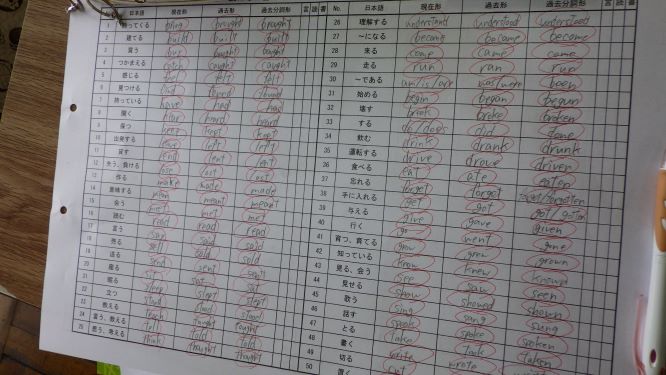 日本語 現在形 過去形 過去分詞形 言 読 書
1 持ってくる bring brought brought
2 建てる build built built
3 買う buy bought bought
4 つかまえる catch caught caught
5 感じる feel felt felt
6 見つける find found found
7 持っている have had had
8 聞く hear heard heard
9 保つ keep kept kept
10 出発する leave left left
11 貸す lend lent lent
12 失う、負ける lose lost lost
13 作る make made made
14 意味する mean meant meant
15 会う met met met
16 読む read read read
17 言う say said said
18 売る sell sold sold
19 送る send sent sent
20 座る sit sat sat
21 眠る sleep slept slept
22 立つ stand stood stood
23 教える teach taught taught
24 言う、教える tell told told
25 思う、考える think thought thought
No. 日本語 現在形 過去形 過去分詞形 言 読 書
26 理解する understand understood understood
27 ～になる become became become
28 来る come came come
29 走る run ran run
30 ～である am/is/are was/were been
31 始める begin began begun
32 壊す break broke broken
33 する do/does did done
34 飲む drink drank drunk
35 運転する drive drove driven
36 食べる eat ate eaten
37 忘れる forget forgot forgot/forgotten
38 手に入れる get got got/gotten
39 与える give gave given
40 行く go went gone
41 育つ、育てる grow grew grown
42 知っている know knew known
43 見る、会う see saw seen
44 見せる show showed shown
45 歌う sing sang sung
46 話す speak spoke spoken
47 とる take took taken
48 書く write wrote
49 切る cut
50 置く